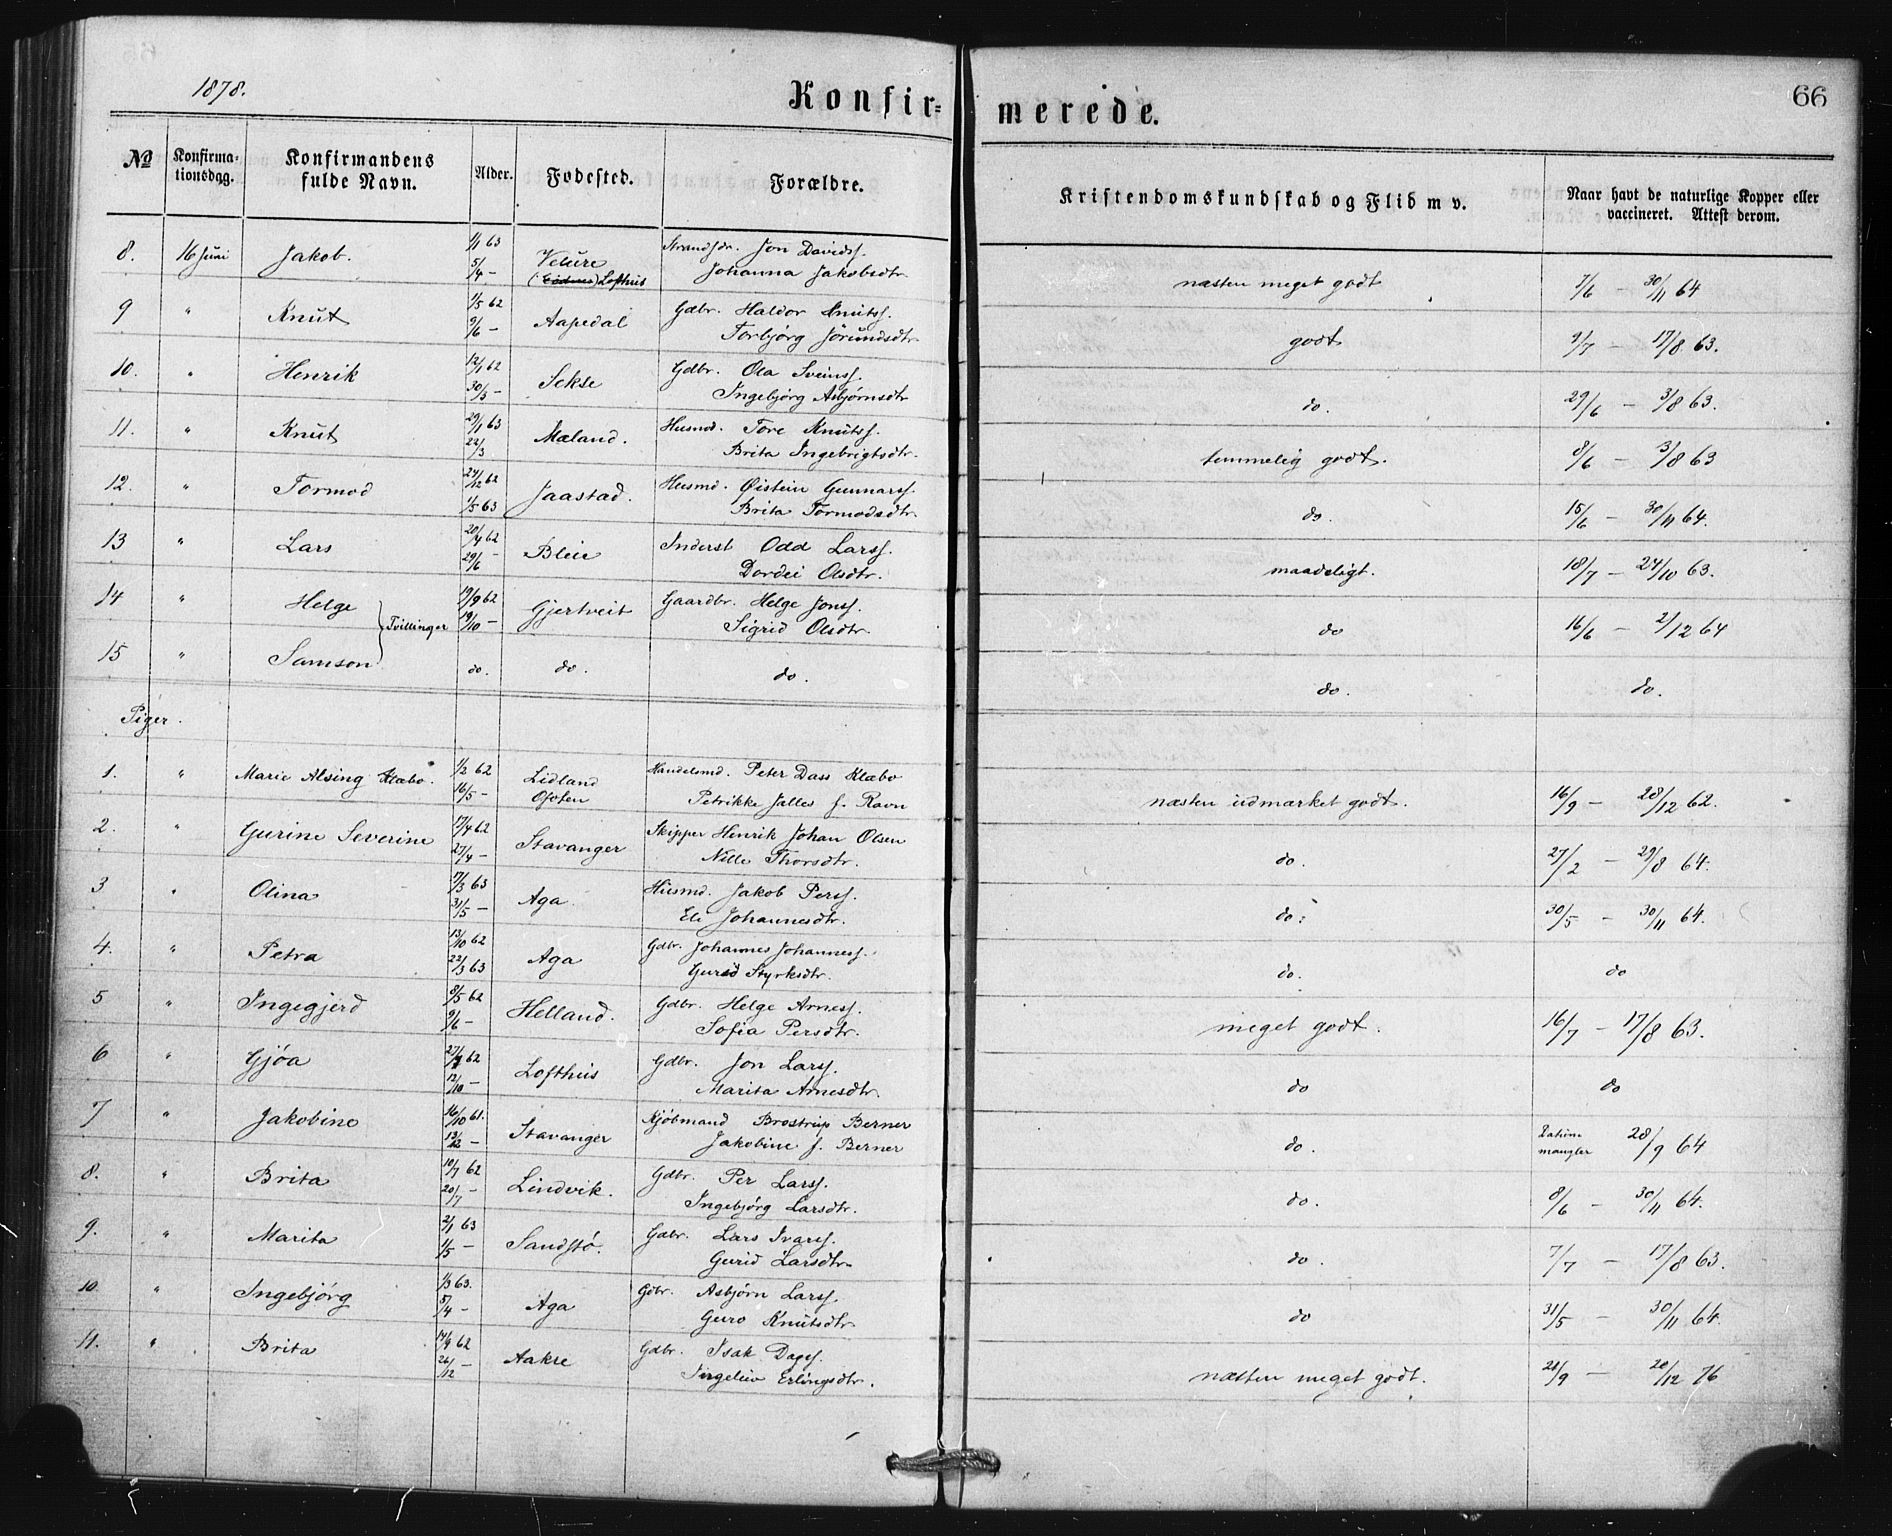 1878.
Konfir-
merede.
66
No
Konfirma-
tionsdag.
Konfirmandens
fulde Navn.
Alder.
Fødested.
Forældre.
Kristendomskundskab og Flid m v.
Naar havt de naturlige Kopper eller
vaccineret. Attest derom.
8. 16 Juni Jakob. 1/1 63 Velure Strandsdr. Jon Davidss. næsten meget godt 7/6 - 30/11 64
5/4 - Lofthus Johanna Jakobsdtr.
9 " Knut 1/5 62 Aapedal Gdbr. Haldor Knutss. godt 9/7 - 17/8 63.
9/6 - Torbjørg Jörundsdtr.
10. " Henrik 12/1 62 Sekse Gdbr. Ola Sveinss. do. 29/6 - 3/8 63.
30/3 - Ingebjörg Asbjørnsdtr
11. " Knut 29/1 63 Mæland. Husmd. Tore Knutss. temmelig godt. 8/6 - 3/8 63
22/3 Brita Ingebrigtsdtr.
12. " Tormod 24/12 62 Jaastad. Husmd. Øistein Gunnarss. do. 15/6 - 30/11 64.
1/5 63 Brita Tormodsdtr.
13 " Lars 20/4 62 Bleie Inderst Odd Larss. maadeligt. 18/7 - 24/10 63.
29/6 - Dordei Olsdtr.
14 " Helge Tvillinger 19/9 62 Gjertveit Gaardbr. Helge Jonss. do 16/6 - 2/12 64
19/10 - Sigrid Olsdtr.
15 " Samson do. do. do. do. do.
Piger.
1. " Marie Alsing Klæbo. 1/2 62 Lidland Handelsmd. Peter Dass Klæbo næsten udmærket godt. 16/9 - 28/12 62.
16/5 - Ofoten Petrikke Jalles f. Ravn
2. " Gurine Severine 17/4 62 Stavanger Skipper Henrik Johan Olsen do. 27/2 - 29/8 64.
27/4 - Nille Thorsdtr.
3 " Olina 7/3 63 Aga. Husmd. Jakob Perss. do. 30/5 - 30/11 64.
31/5 - Eli Johannesdtr.
4. " Petra 13/10 62 Aga Gdbr. Johannes Johanness. do. do
22/3 63 Gurid Styrksdtr.
5 " Ingegjerd 8/5 62 Helland. Gdbr. Helge Arness. meget godt. 16/7 - 17/8 63.
9/6 - Sofia Persdtr.
6 " Gjøa 62 Lofthus Gdbr. Jon Larss. do do
12/10 - Marita Arnesdtr.
7 " Jakobine 16/10 61. Stavanger Kjøbmand Brostrup Berner do. Datum mangler 28/9 64
13/12 - Jakobine f. Berner
8. " Brita 10/7 62 Lindvik. Gdbr. Per Larss. do. 8/6 - 30/11 64.
20/7 - Ingebjørg Larsdtr.
9. " Marita 2/1 63 Sandstø. Gdbr. Lars Ivarss. do. 7/7 - 17/8 63.
1/5 - Gurid Larsdtr.
10. " Ingebjörg 1/3 63. Aga Gdbr. Asbjørn Larss. do 31/5 30/11 64.
5/4 - Guro Knutsdtr.
11. " Brita 62 Aakre Gdbr. Isak Dagss. næsten meget godt. 21/9 - 20/12 76
26/12 - Erlingsdtr.